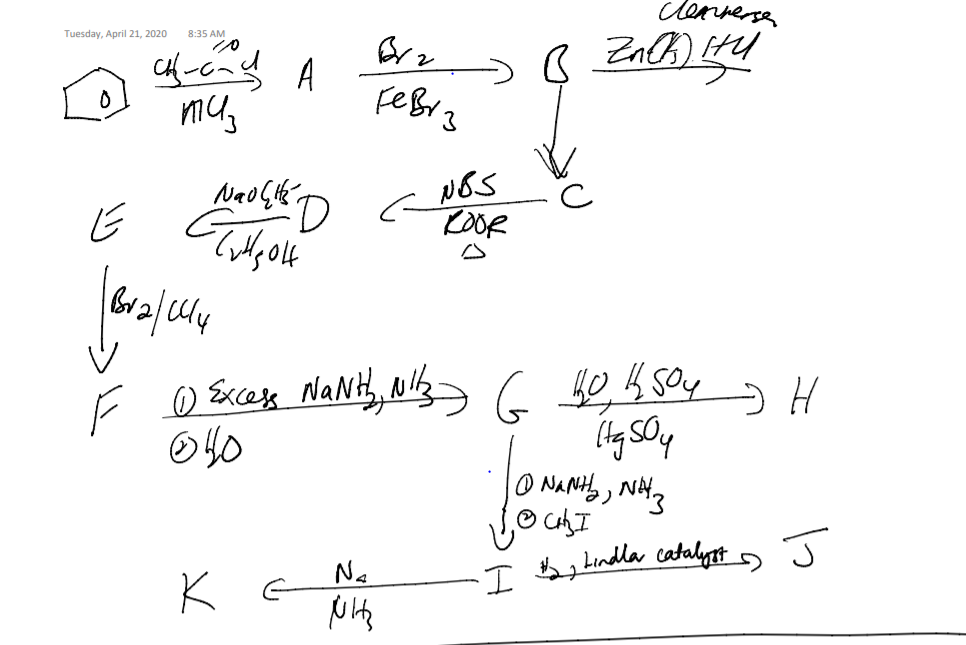 Tuesday, April 21, 2020 8:35 AM
Clemmensen
CH3-C-Cl
O
AlCl3
A
Br2
FeBr3
B
Zn(Hg) HCl
C
NBS
ROOR
Δ
D
NaOC2H5
C2H5OH
E
Br2/CCl4
F
① Excess NaNH2, NH3
② H2O
G
H2O, H2SO4
HgSO4
H
① NaNH2, NH3
② CH3I
I
H2, Lindlar catalyst
J
Na
NH3
K